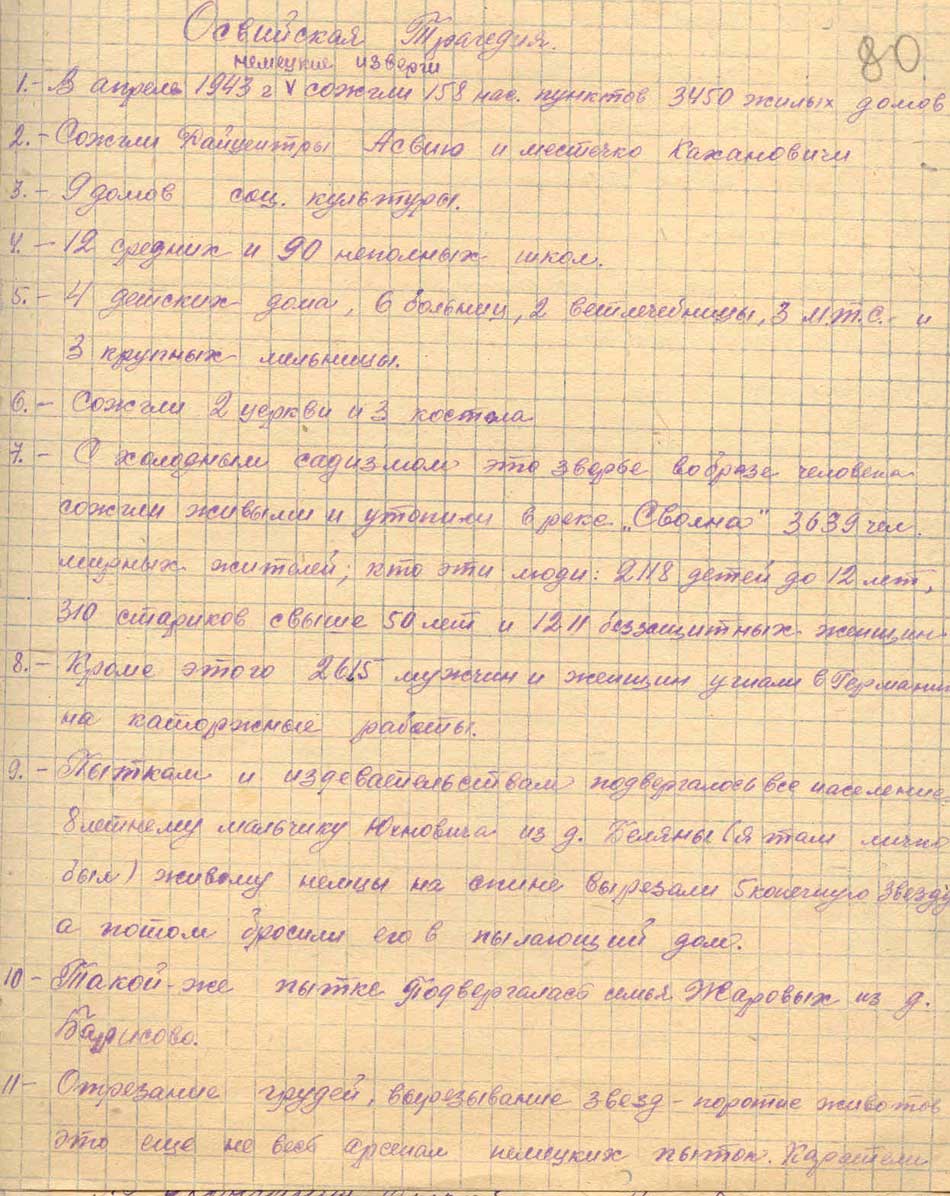 Освийская Трагедия.
80
немецкие изверги
1.- В апреле 1943 г v сожгли 158 нас. пунктов 3450 жилых домов
2.- Сожгли Райцентры Асвию и местечко Кахановичи
3.- 9 домов соц. культуры.
4.- 12 средних и 90 неполных школ.
5.- 4 детских дома, 6 больниц, 2 ветлечебницы, 3 М.Т.С. и
3 крупных мельницы.
6.- Сожгли 2 церкви и 3 костела
7.- С холодным садизмом это зверье вобразе человека
сожгли живыми и утопили в реке „Сволна" 3639 чел.
мирных жителей; кто эти люди: 2118 детей до 12 лет,
310 стариков свыше 50 лет и 1211 беззащитных женщин
8.- Кроме этого 2615 мужчин и женщин угнали в Германию
на каторжные работы.
9.- Пыткам и издевательствам подвергалось все население
8 летнему мальчику Юхновича из д. Беляны (я там лично
был) живому немцы на спине вырезали 5 конечную звезду
а потом бросили его в пылающий дом.
10- Такой-же пытке Подвергалась семья Жаровых из д.
Барисово.
11- Отрезание грудей, вырезывание звезд - поротие животов
это еще не весь арсенал немецких пыток. Каратели